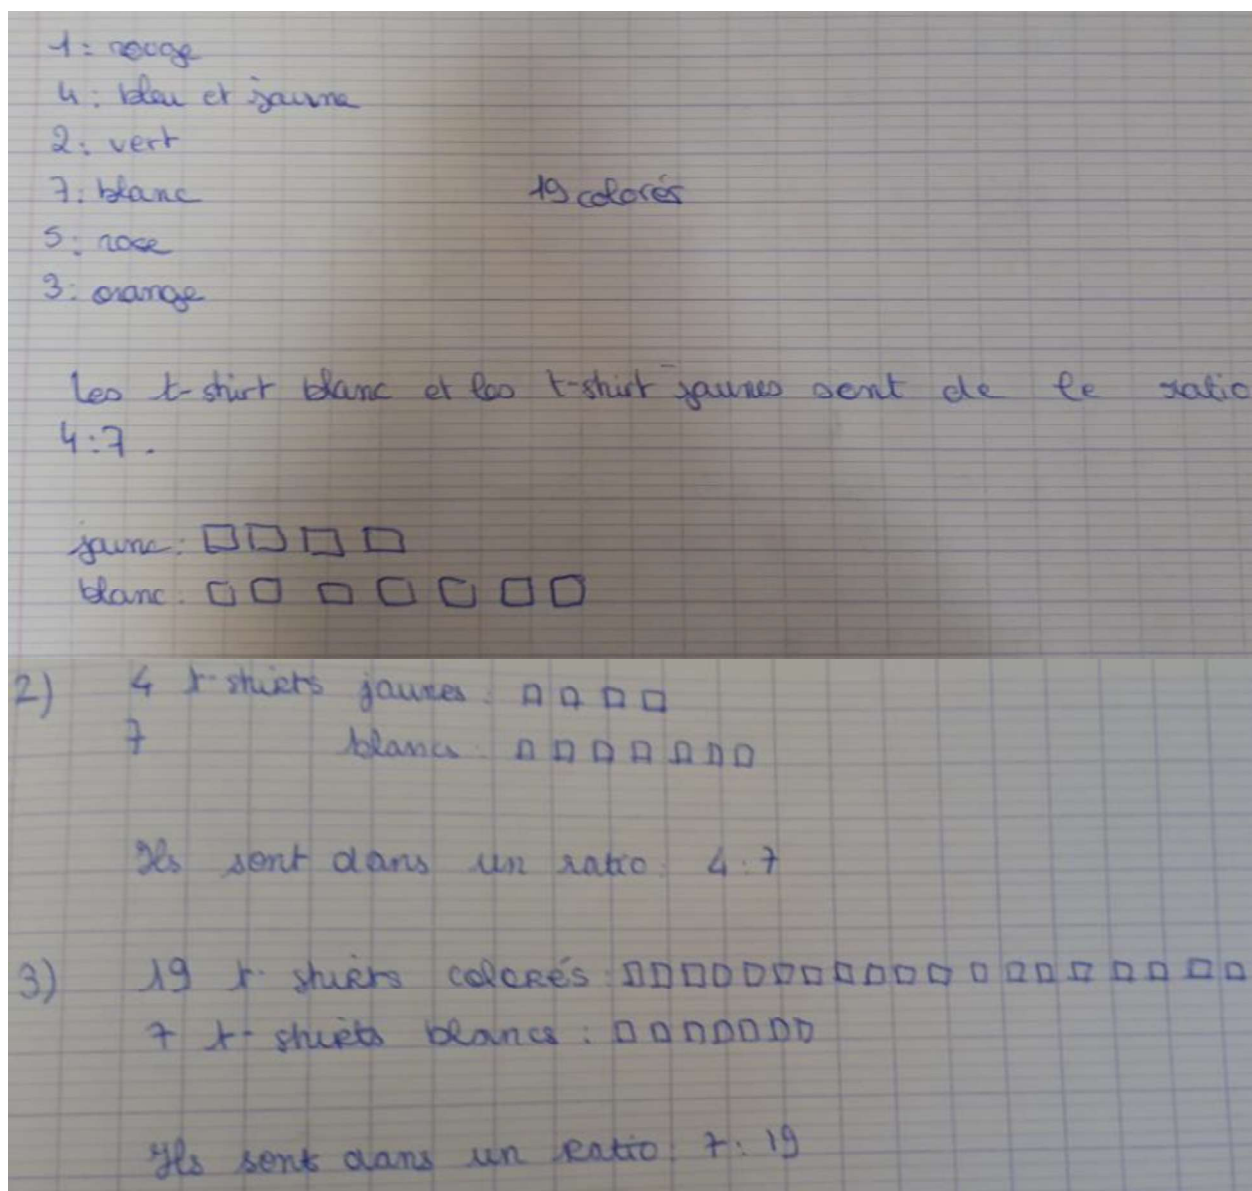 1: rouge
4: bleu et jaune
2: vert
7: blanc
19 colorés
5: rose
3: orange
Les t-shirt blanc et les t-shirt jaunes sent de le ratio
4:7.
jaune:
blanc:
2) 4 t-shierts jaunes:
7 blancs:
Ils sont dans un ratio: 4:7
3) 19 t-shierts colorés:
7 t-shierts blancs:
Ils sont dans un ratio: 7:19